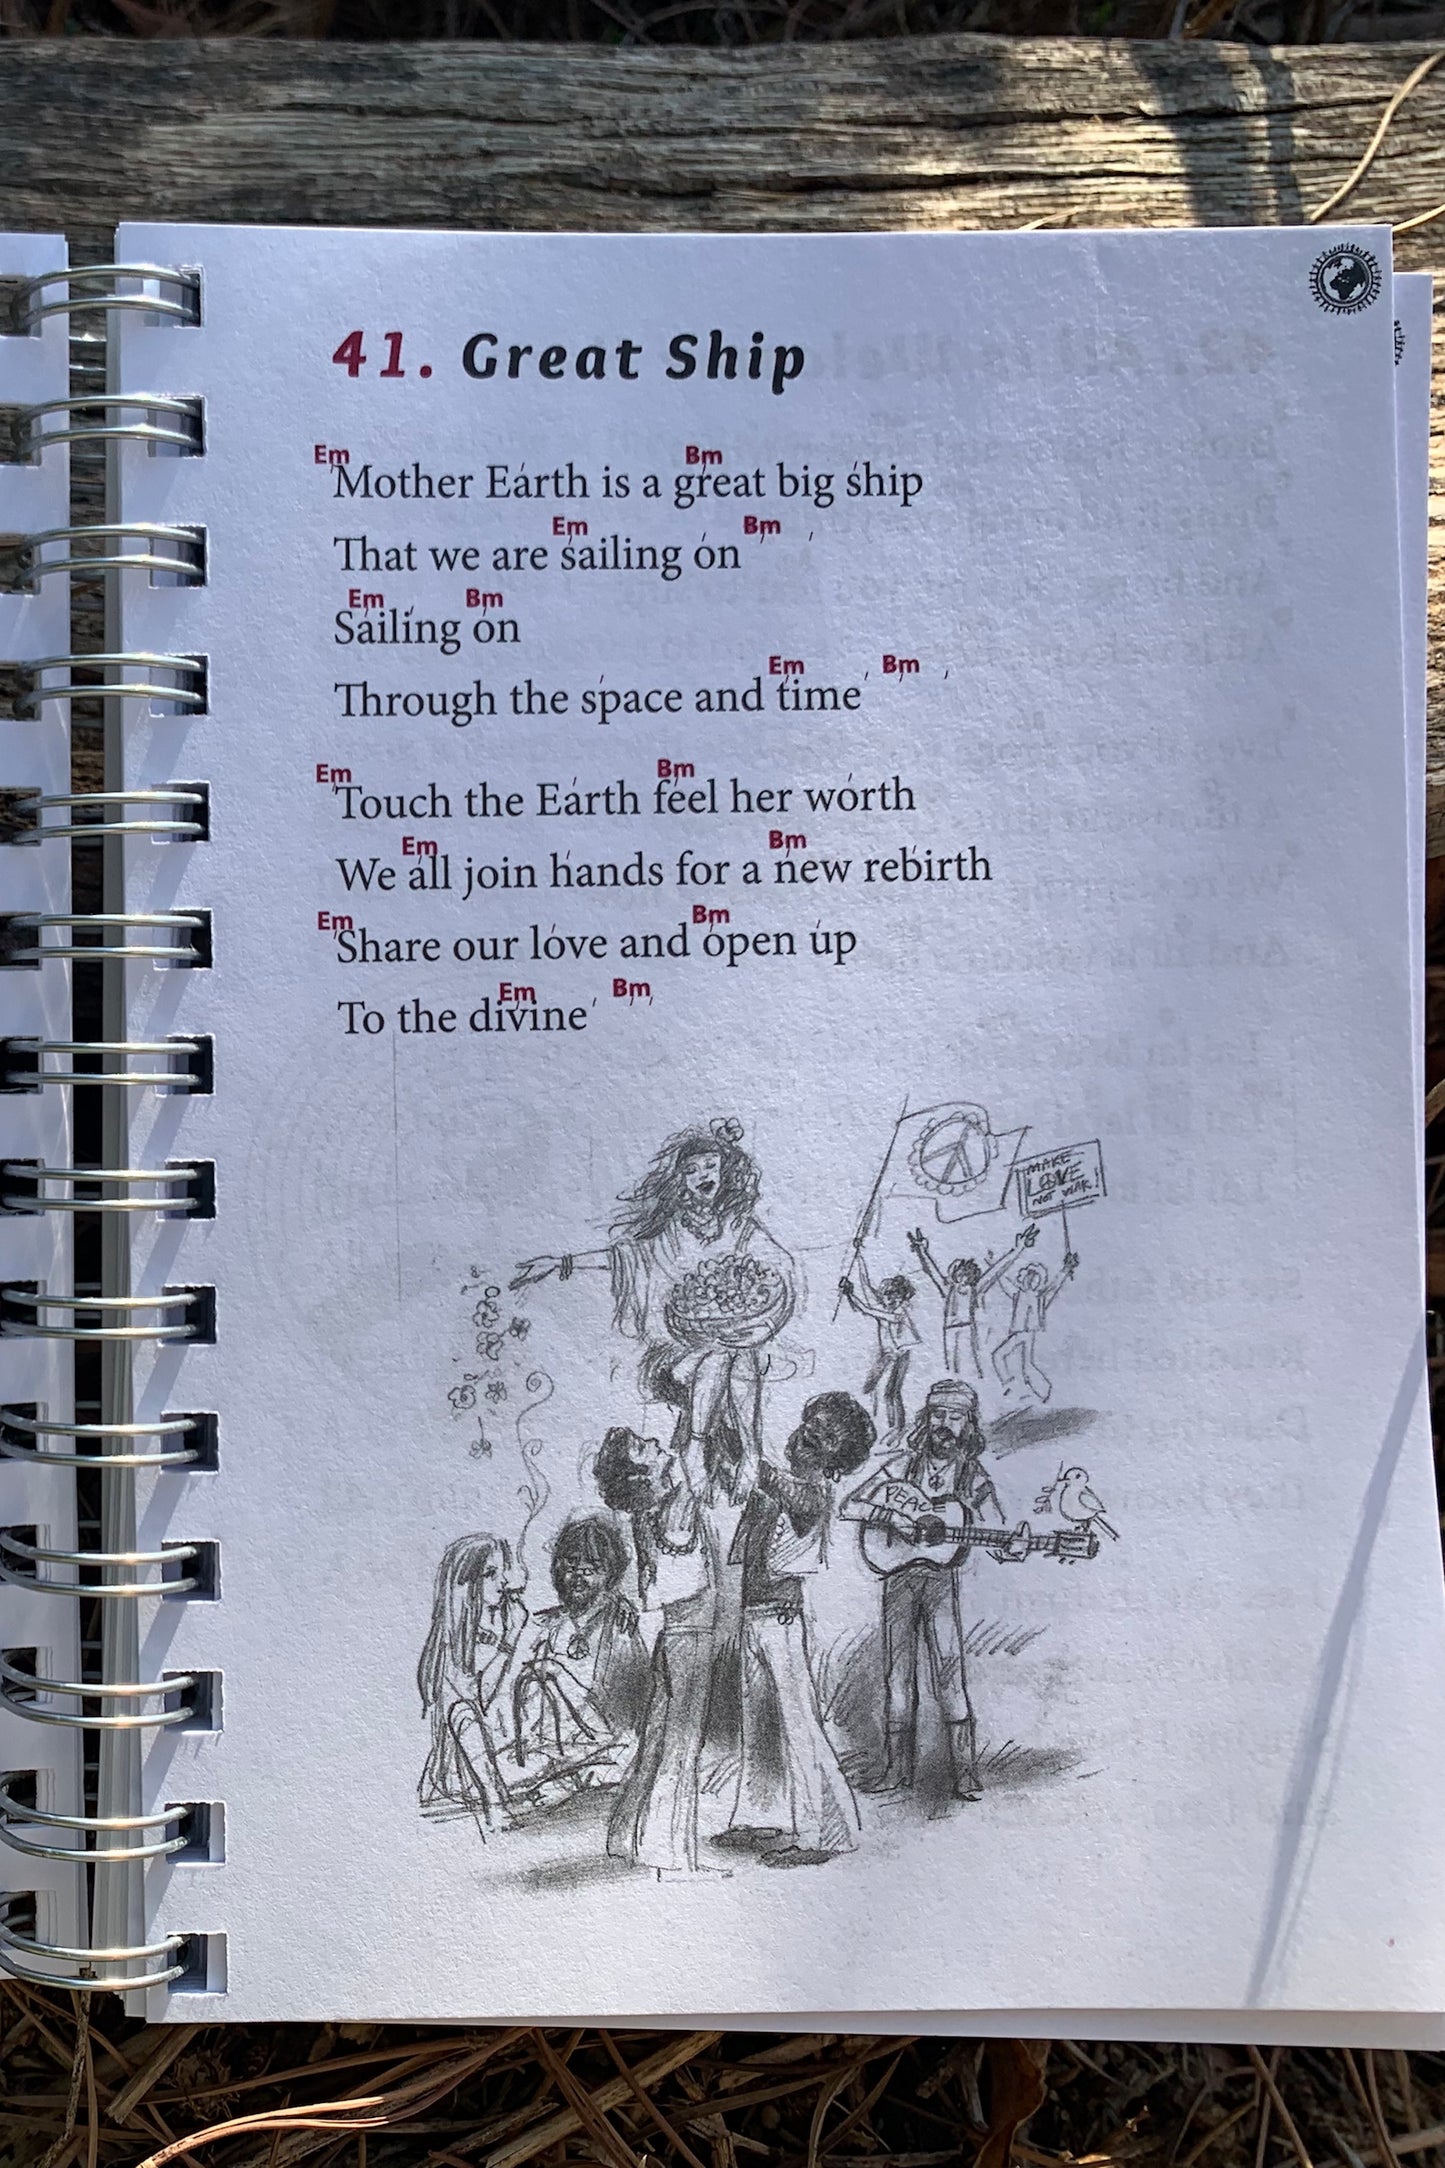 41. Great Ship
Em Bm
Mother Earth is a great big ship
Em Bm
That we are sailing on
Em Bm
Sailing on
Em Bm
Through the space and time
Em Bm
Touch the Earth feel her worth
Em Bm
We all join hands for a new rebirth
Em Bm
Share our love and open up
Em Bm
To the divine
MAKE
LOVE
NOT WAR!
PEACE